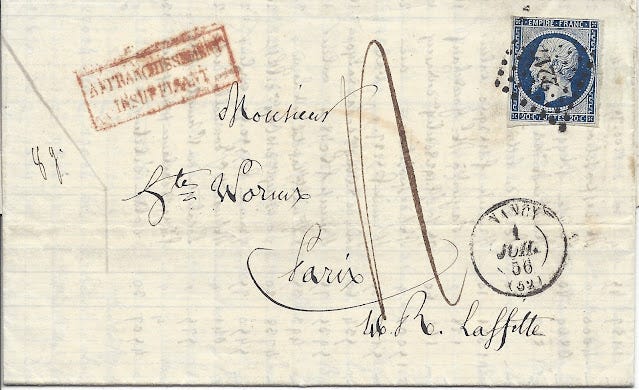 AFFRANCHISSEMENT
INSUFFISANT
EMPIRE FRANC.
20 C. POSTES 20 C.
8 g.
Monsieur
Hte Worms
Paris
46 R. Laffitte
NANCY
1
JUIL.
56
(52)